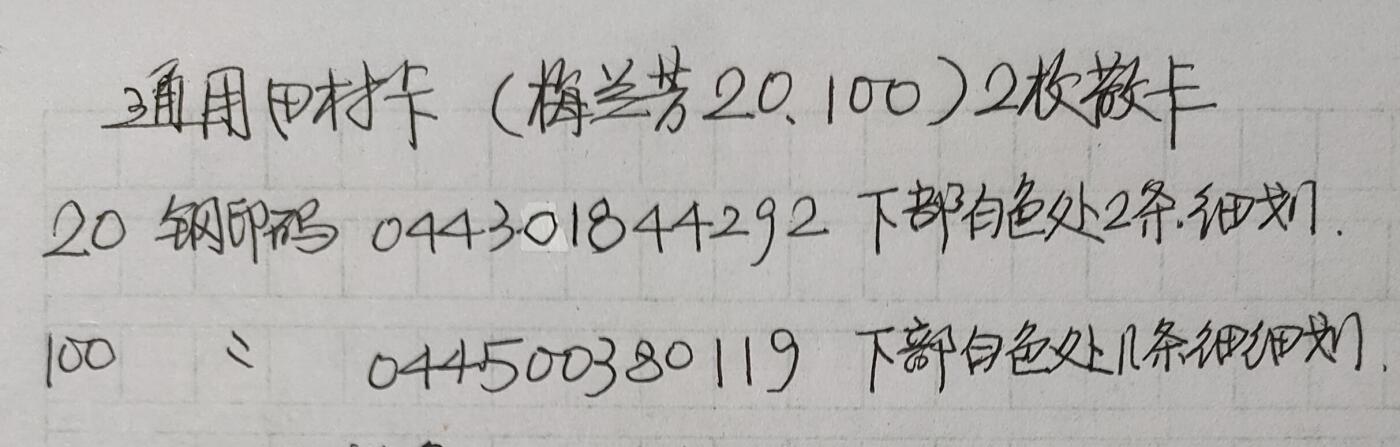 通用田村卡（梅兰芳20、100）2枚散卡
20 钢印码 044301844292 下部白色处2条细划.
100 〃 044500380119 下部白色处几条细细划.